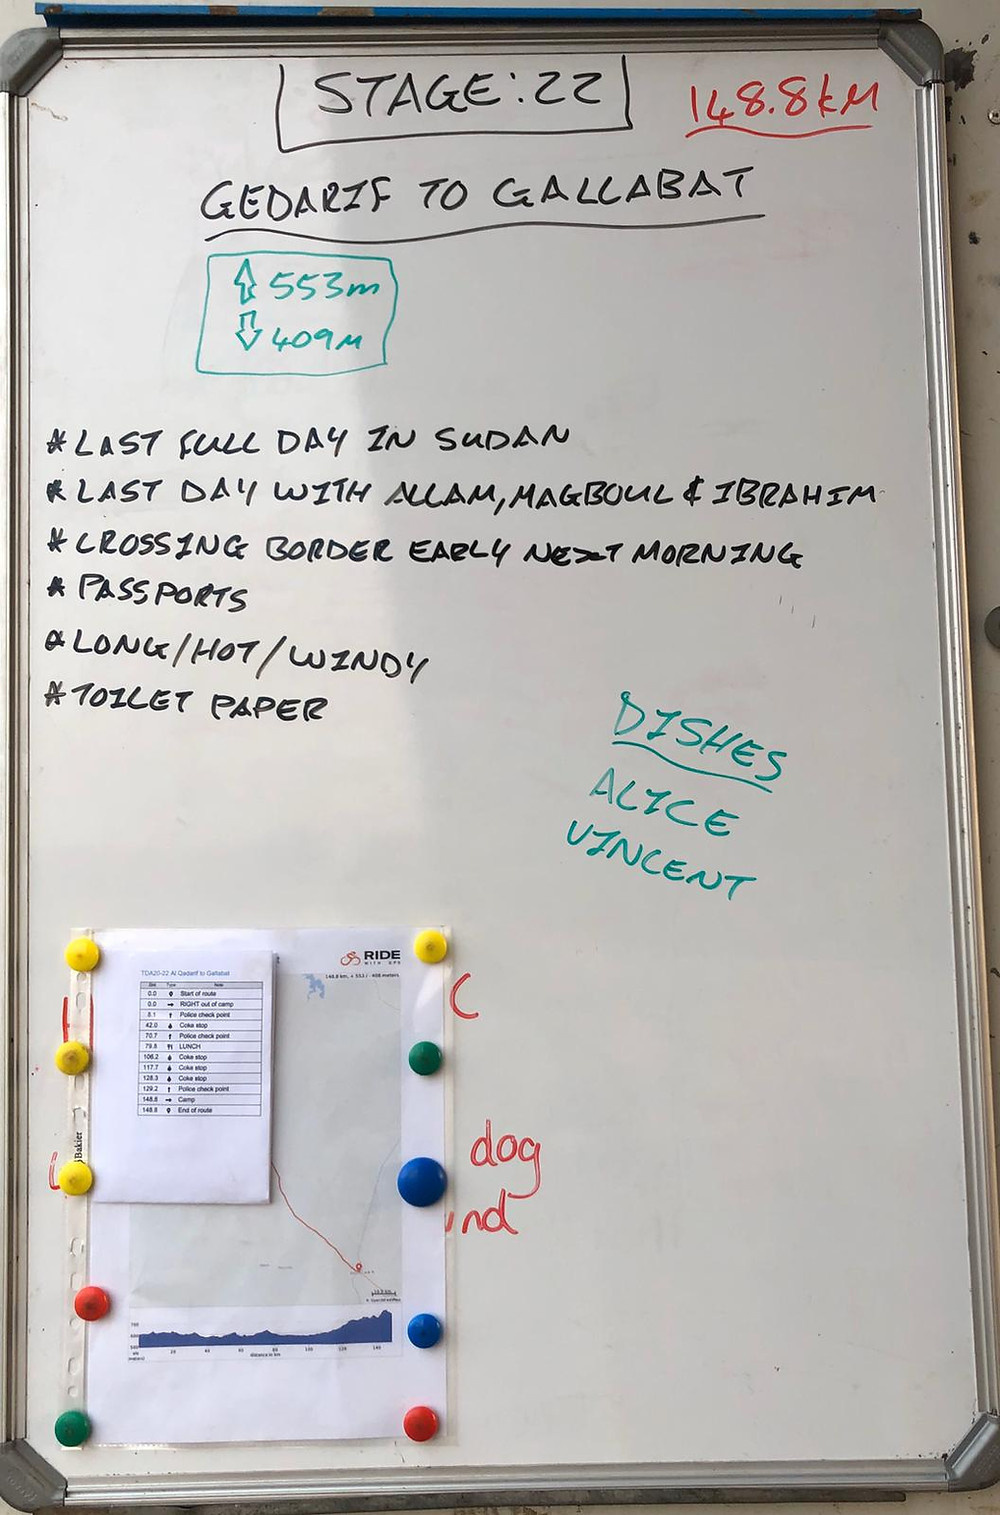 STAGE:22
148.8KM
GEDARIF TO GALLABAT
⇧ 553m
⇩ 409M
* LAST FULL DAY IN SUDAN
* LAST DAY WITH ALLAM, MAGBOUL & IBRAHIM
* CROSSING BORDER EARLY NEXT MORNING
* PASSPORTS
* LONG/HOT/WINDY
* TOILET PAPER
DISHES
ALICE
VINCENT
RIDE
WITH GPS
TDA20-22 Al Qadarif to Gallabat
Type Note
0.0 Start of route
0.0 → RIGHT out of camp
8.1 ↑ Police check point
42.0 Coke stop
70.7 ↑ Police check point
79.8 LUNCH
106.2 Coke stop
117.7 Coke stop
128.3 Coke stop
129.2 ↑ Police check point
148.8 → Camp
148.8 End of route
Bakier
C
dog
und
20 40 60 80 100 120 140
distance in km